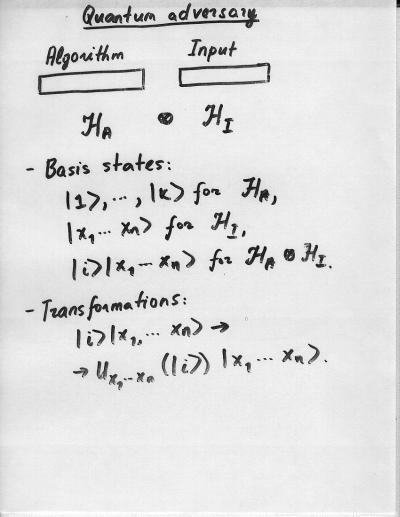 Quantum adversary
Algorithm Input
H_A ⊗ H_I
- Basis states:
|1⟩, ..., |k⟩ for H_A,
|x_1 ... x_n⟩ for H_I,
|i⟩|x_1 ... x_n⟩ for H_A ⊗ H_I.
- Transformations:
|i⟩|x_1, ... x_n⟩ →
→ U_{x_1 ... x_n} (|i⟩) |x_1 ... x_n⟩.